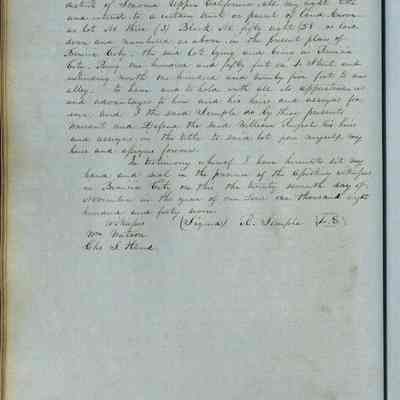 district of Sonoma Upper California all my right title
and interest to a certain tract or parcel of Land known
as Lot No three (3) Block No fifty eight (58) as laid
down and numbered as above in the present plan of
Benicia City, the said lot lying and being in Benicia
City. Being one hundred and fifty feet on Street and
extending north one hundred and twenty five feet to an
alley. To have and to hold with all its appurtenances
and advantages to him and his heirs and assigns for
ever and I the said Semple do by these presents
warrant and defend the said William his heirs
and assigns in the title to said lot from myself my
heirs and assigns forever.
In testimony whereof I have hereunto set my
hand and seal in the presence of the witnesses
in Benicia City on this the twenty seventh day of
November in the year of our Lord one thousand eight
hundred and forty seven
Witnesses (Signed) R. Semple (L.S.)
Wm Watson
Chs